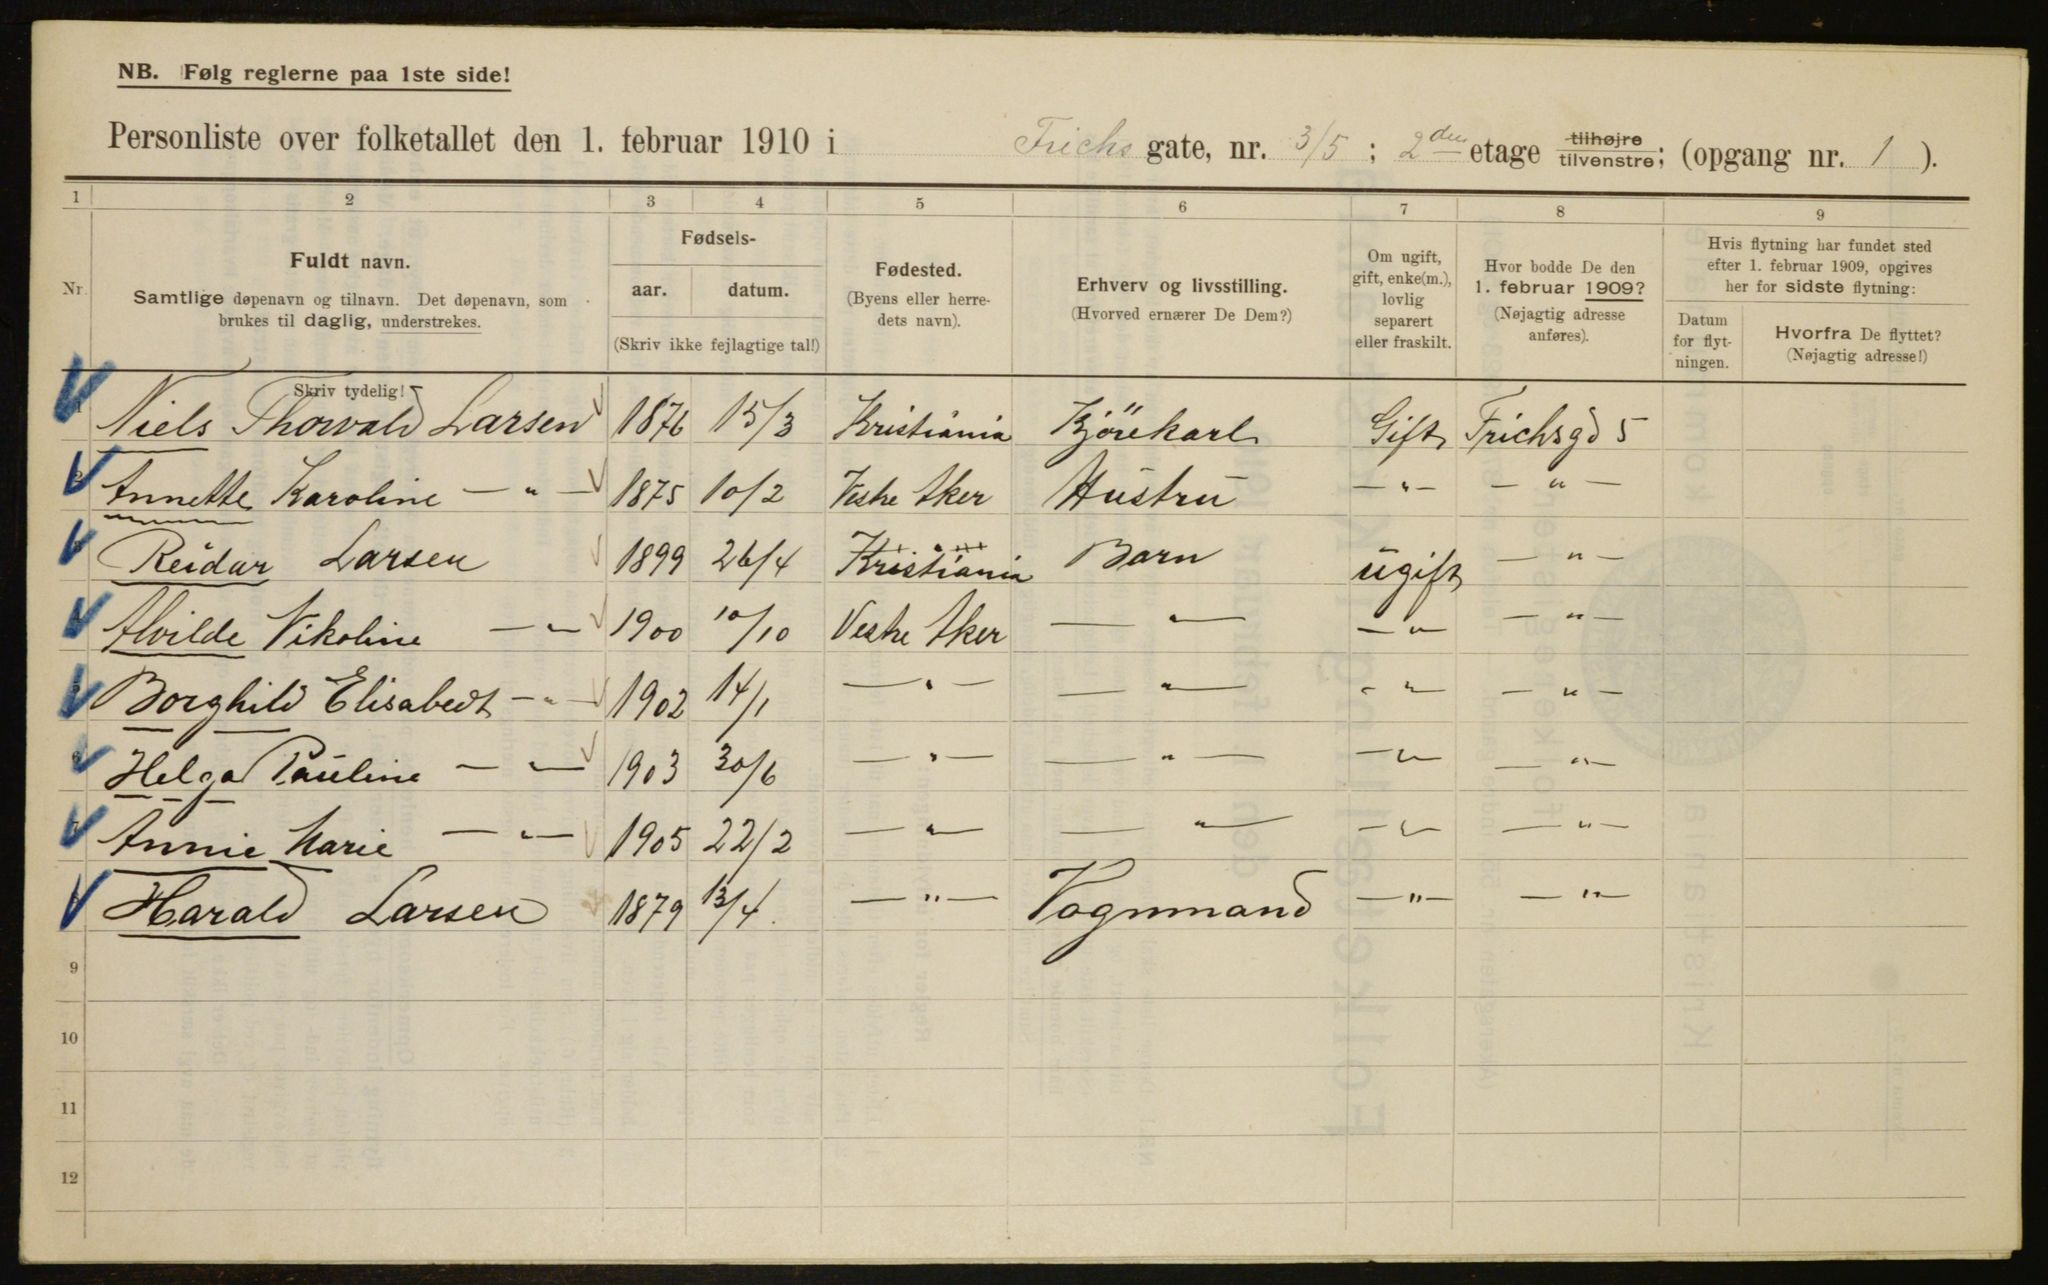 NB. Følg reglerne paa 1ste side!
Personliste over folketallet den 1. februar 1910 i Frichs gate, nr. 3/5 ; 2den etage tilhøjre tilvenstre; (opgang nr. 1 ).
1 2 3 4 5 6 7 8 9
Nr.
Fuldt navn.
Samtlige døpenavn og tilnavn. Det døpenavn, som
brukes til daglig, understrekes.
Skriv tydelig!
Fødsels-
aar. datum.
(Skriv ikke fejlagtige tal!)
Fødested.
(Byens eller herre-
dets navn).
Erhverv og livsstilling.
(Hvorved ernærer De Dem?)
Om ugift,
gift, enke(m.),
lovlig
separert
eller fraskilt.
Hvor bodde De den
1. februar 1909?
(Nøjagtig adresse
anføres).
Hvis flytning har fundet sted
efter 1. februar 1909, opgives
her for sidste flytning:
Datum
for flyt-
ningen.
Hvorfra De flyttet?
(Nøjagtig adresse!)
1 Niels Thorvald Larsen 1876 15/3 Kristiania Kjörekarl Gift Frichsgd 5
2 Annette Karoline — " — 1875 10/2 Vestre Aker Hustru — " — — " —
3 Reidar Larsen 1899 26/4 Kristiania Barn ugift — " —
4 Alvilde Nikoline — " — 1900 10/10 Vestre Aker — " — — " — — " —
5 Borghild Elisabedt — " — 1902 14/1 — " — — " — — " — — " —
6 Helga Pauline — " — 1903 30/6 — " — — " — — " — — " —
7 Annie Marie — " — 1905 22/2 — " — — " — — " — — " —
8 Harald Larsen 1879 13/4 — " — Vognmand — " — — " —
9
10
11
12